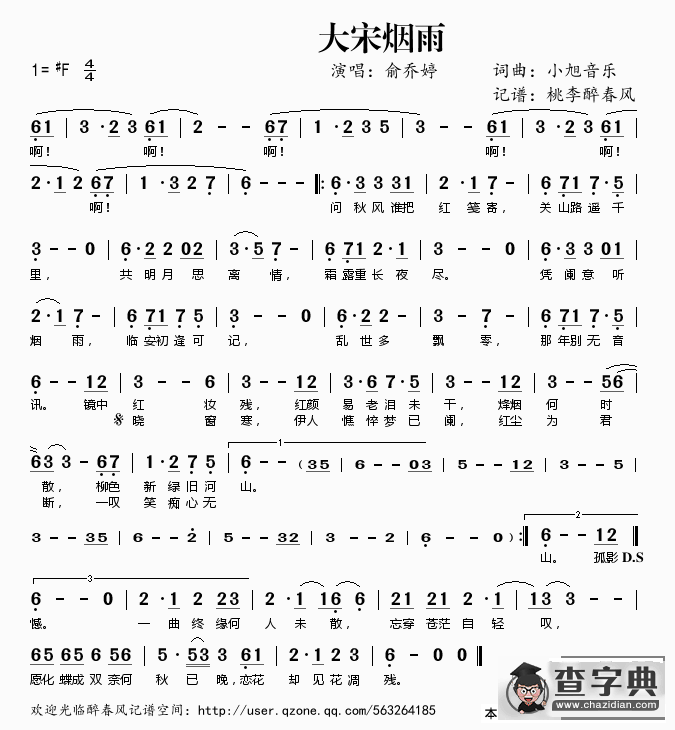 大宋烟雨
1=♯F 4/4 演唱：俞乔婷 词曲：小旭音乐
记谱：桃李醉春风
61 | 3 · 23 61 | 2 - - 67 | 1 · 3 2 3 5 | 3 - - 61 | 3 · 23 61 |
啊！ 啊！ 啊！ 啊！ 啊！
2 · 1 2 67 | 1 · 3 2 7 | 6 - - - |: 6 · 3 3 31 | 2 · 1 7 - | 6 71 7 · 5 |
啊！ 问秋风谁把 红笺寄， 关山路遥千
3 - - 0 | 6 · 2 2 02 | 3 · 5 7 - | 6 71 2 · 1 | 3 - - 0 | 6 · 3 3 01 |
里， 共明月思 离情， 霜露重长夜 尽。 凭阑意听
2 · 1 7 - | 6 71 7 5 | 3 - - 0 | 6 · 2 2 - | 3 - 7 - | 6 71 7 · 5 |
烟雨， 临安初逢可 记， 乱世多 飘零， 那年别无音
6 - - 12 | 3 - - 6 | 3 - - 12 | 3 · 6 7 · 5 | 3 - - 12 | 3 - - 56 |
讯。 镜中 红 妆 残， 红颜 易老泪未 干， 烽烟 何 时
晓 窗 寒， 伊人 憔悴梦已 阑， 红尘 为 君
63 3 - 67 | 1 · 2 7 5 | 1 6 - - (35 | 6 - - 03 | 5 - - 12 | 3 - - 35 |
散， 柳色 新绿旧河 山。
断， 一叹 笑痴心无
3 - - 35 | 6 - - 2 | 5 - - 32 | 3 - - 2 | 6 - - 0 ) :| 2 6 - - 12 ‖
山。 孤影 D.S
3 6 - - 0 | 2 · 1 2 23 | 3 - 1 16 | 6 - - 0 | 21 21 2 · 1 | 1 3 - - |
憾。 一曲终缘何 人未散， 忘穿苍茫自轻 叹，
65 65 6 56 | 5 · 53 3 61 | 2 · 1 2 2 | 6 - 0 0 ‖
愿化蝶成双奈何 秋已晚，恋花 却见花凋 残。
欢迎光临醉春风记谱空间：http://user.qzone.qq.com/563264185 本
查字典
www.chazidian.com